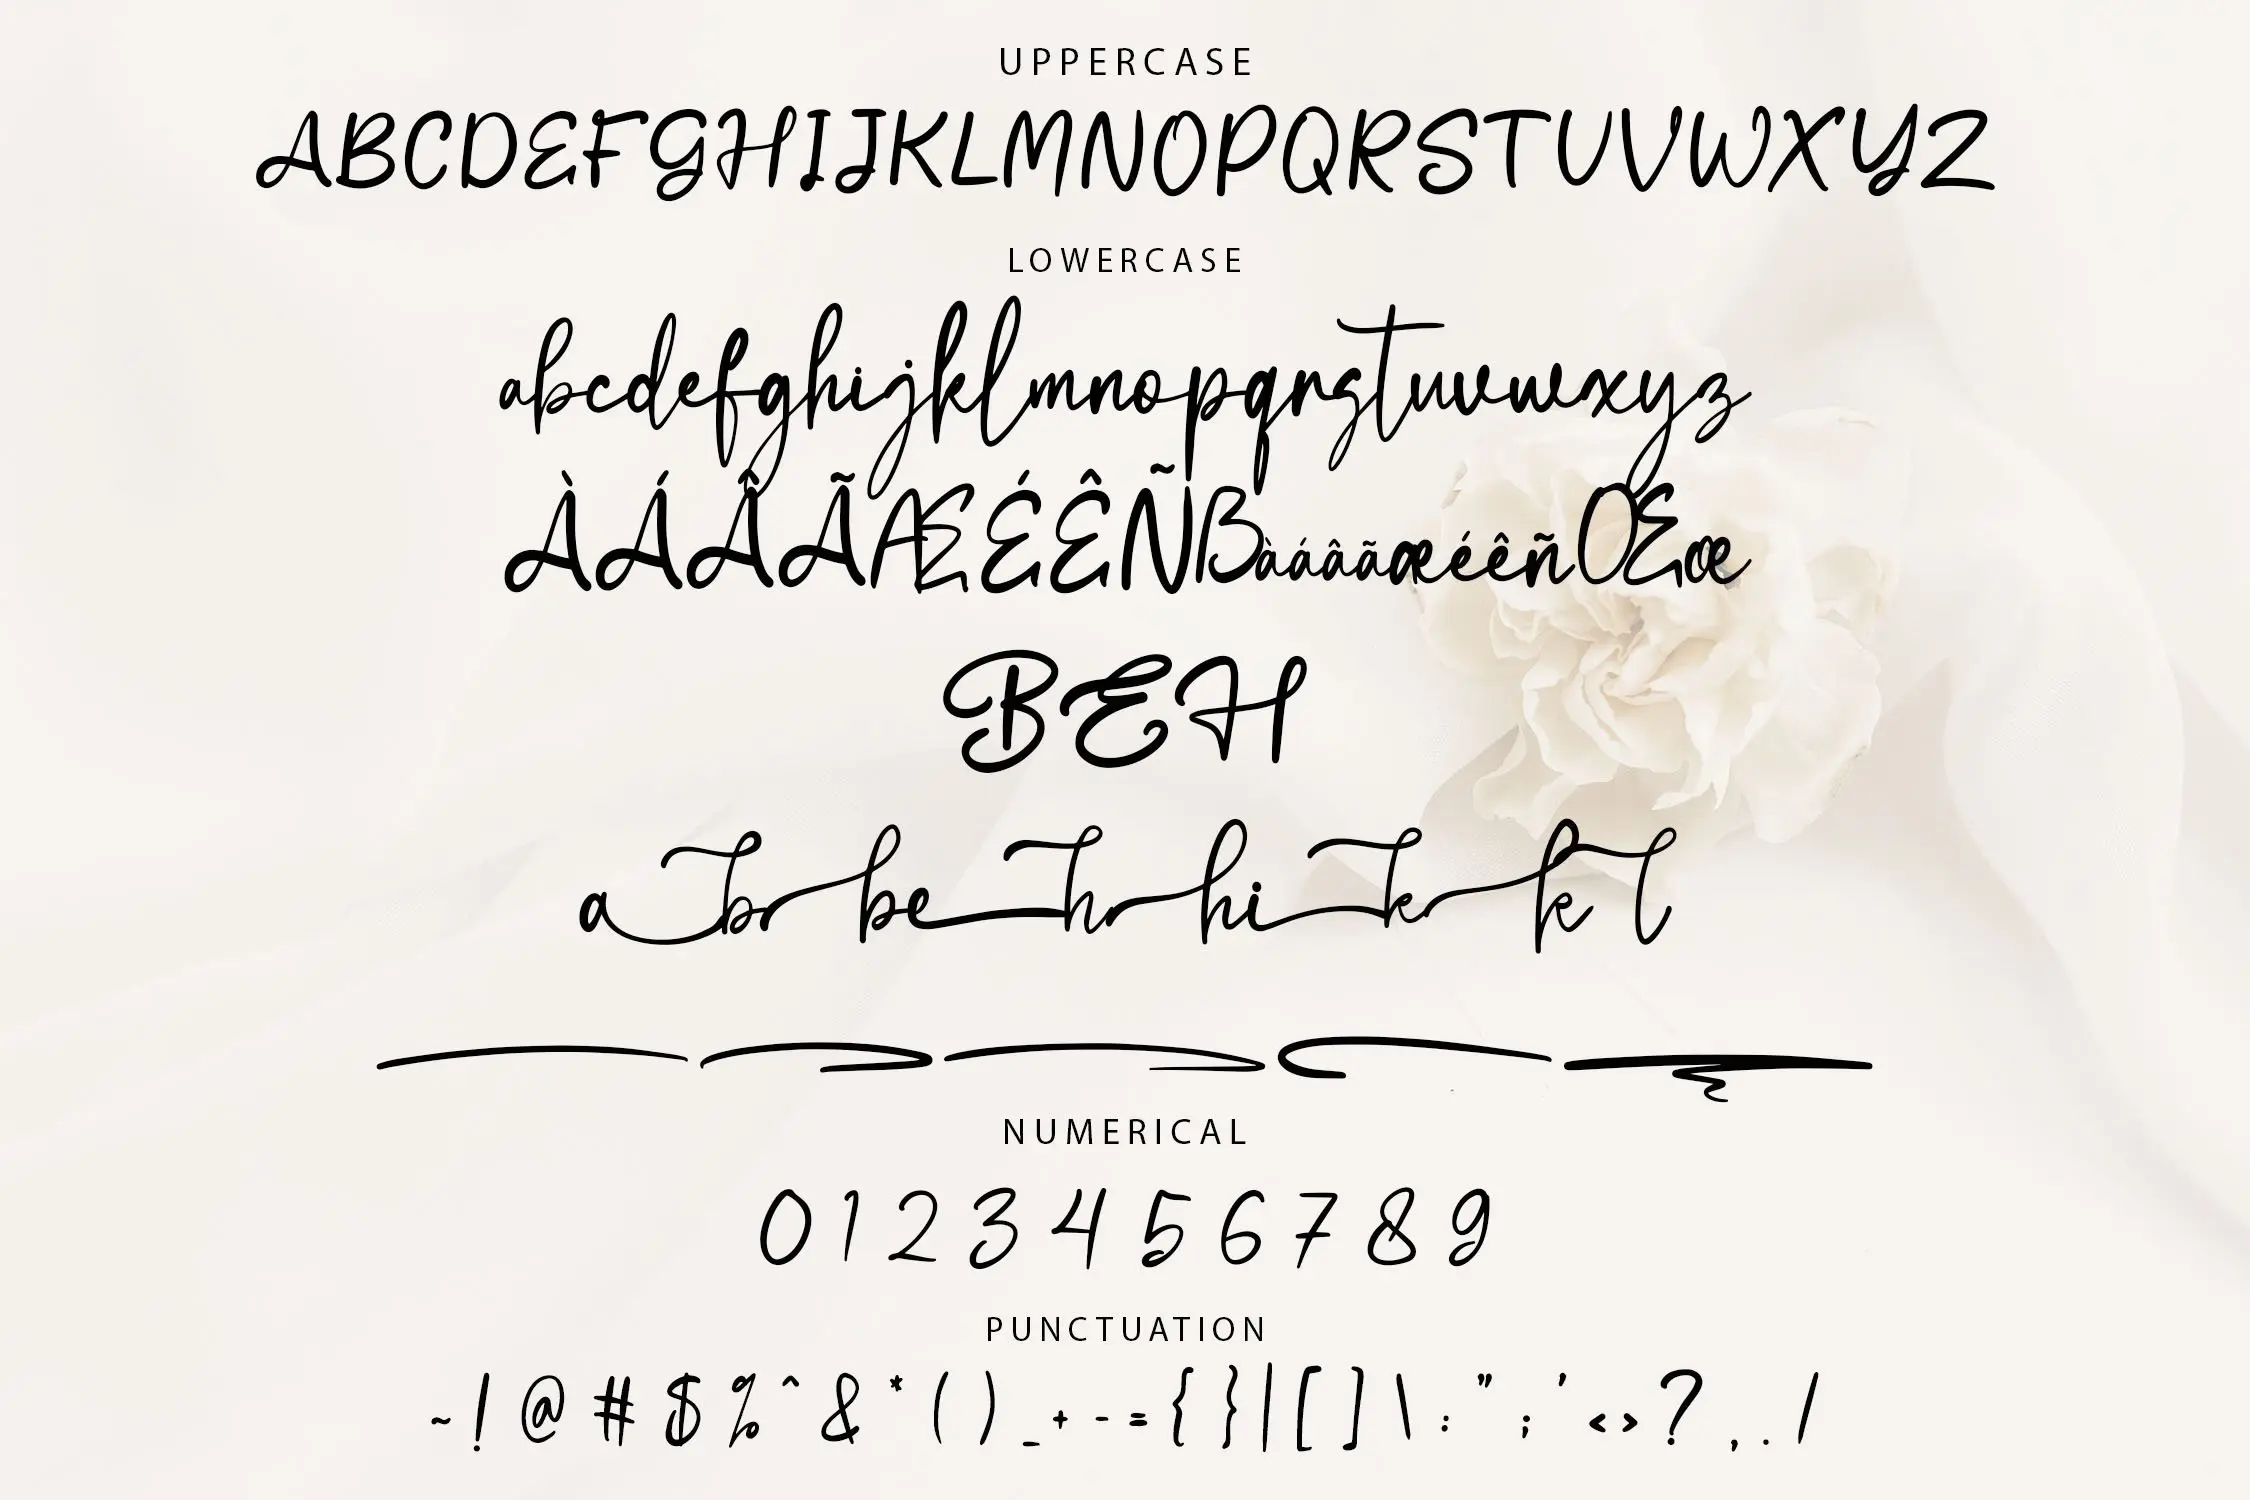 UPPERCASE
ABCDEFGHIJKLMNOPQRSTUVWXYZ
LOWERCASE
abcdefghijklmnopqrstuvwxyz
ÀÁÂÃÆÉÊÑßàáâãæéêñŒœ
BEH
a br be h hi k k l
NUMERICAL
0 1 2 3 4 5 6 7 8 9
PUNCTUATION
~ ! @ # $ % ^ & * ( ) _ + - = { } | [ ] \ : " ; ' < > ? , . /